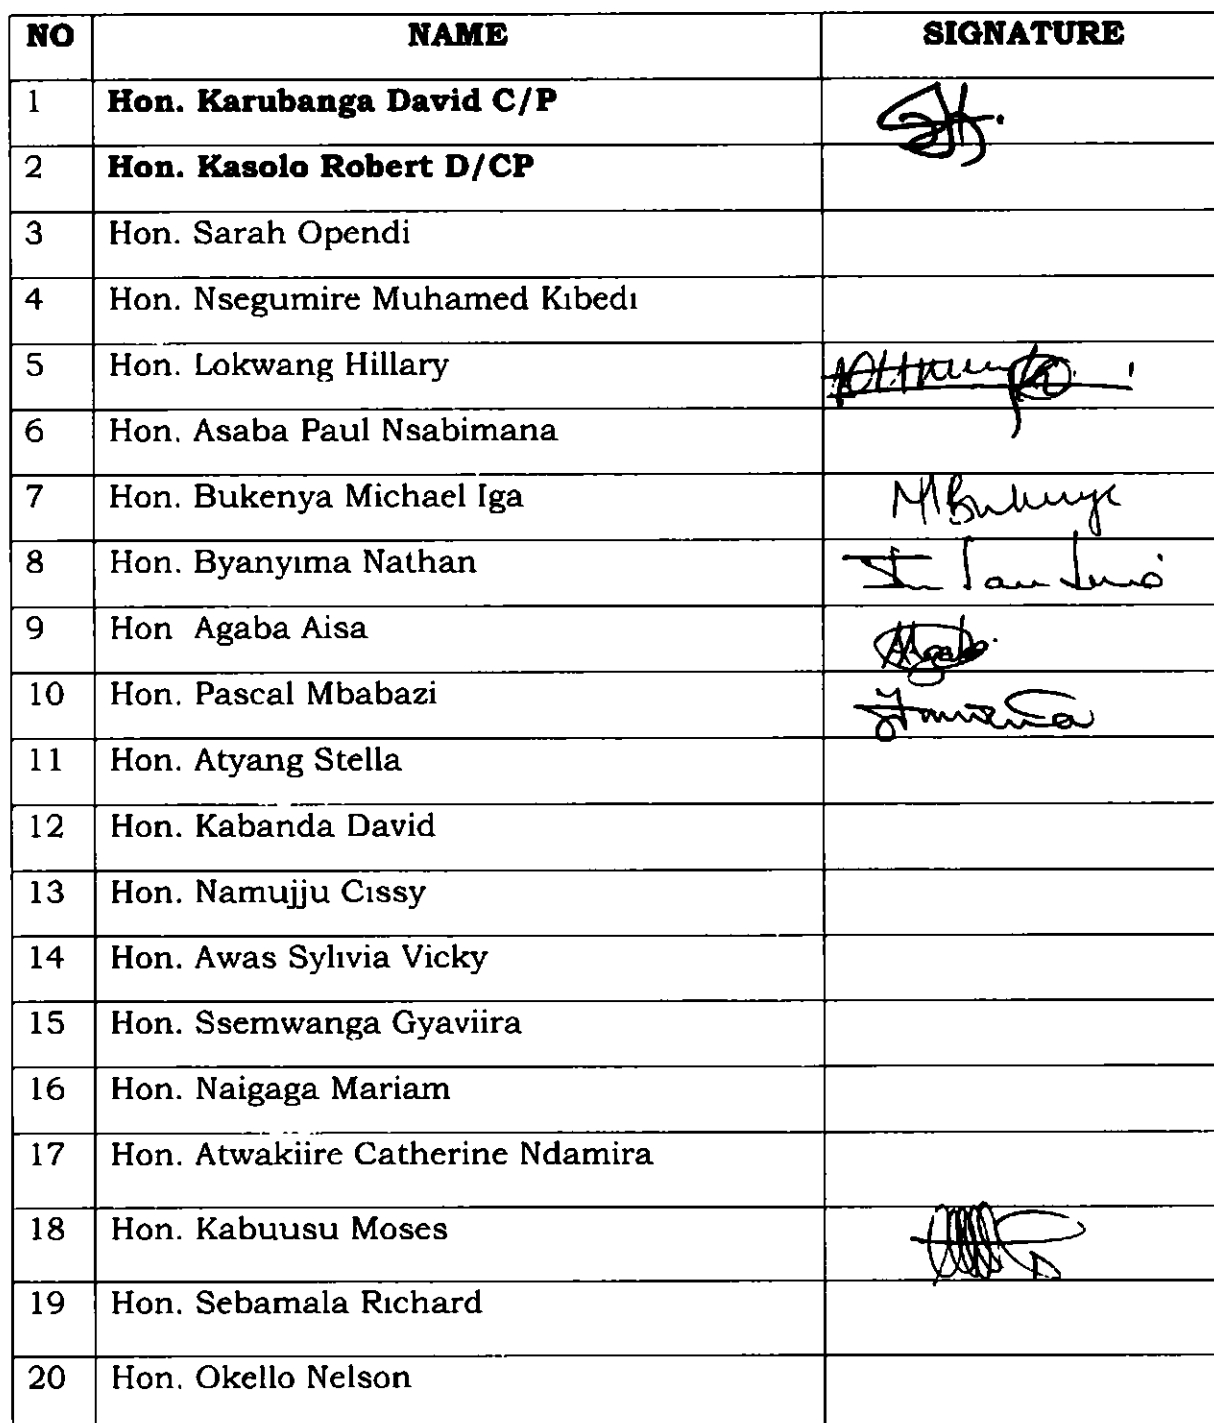 NO NAME SIGNATURE
1 Hon. Karubanga David C/P
2 Hon. Kasolo Robert D/CP
3 Hon. Sarah Opendi
4 Hon. Nsegumire Muhamed Kıbedı
5 Hon. Lokwang Hillary
6 Hon. Asaba Paul Nsabimana
7 Hon. Bukenya Michael Iga MBukenya
8 Hon. Byanyıma Nathan
9 Hon Agaba Aisa
10 Hon. Pascal Mbabazi
11 Hon. Atyang Stella
12 Hon. Kabanda David
13 Hon. Namujju Cıssy
14 Hon. Awas Sylıvia Vicky
15 Hon. Ssemwanga Gyaviira
16 Hon. Naigaga Mariam
17 Hon. Atwakiire Catherine Ndamira
18 Hon. Kabuusu Moses
19 Hon. Sebamala Rıchard
20 Hon. Okello Nelson